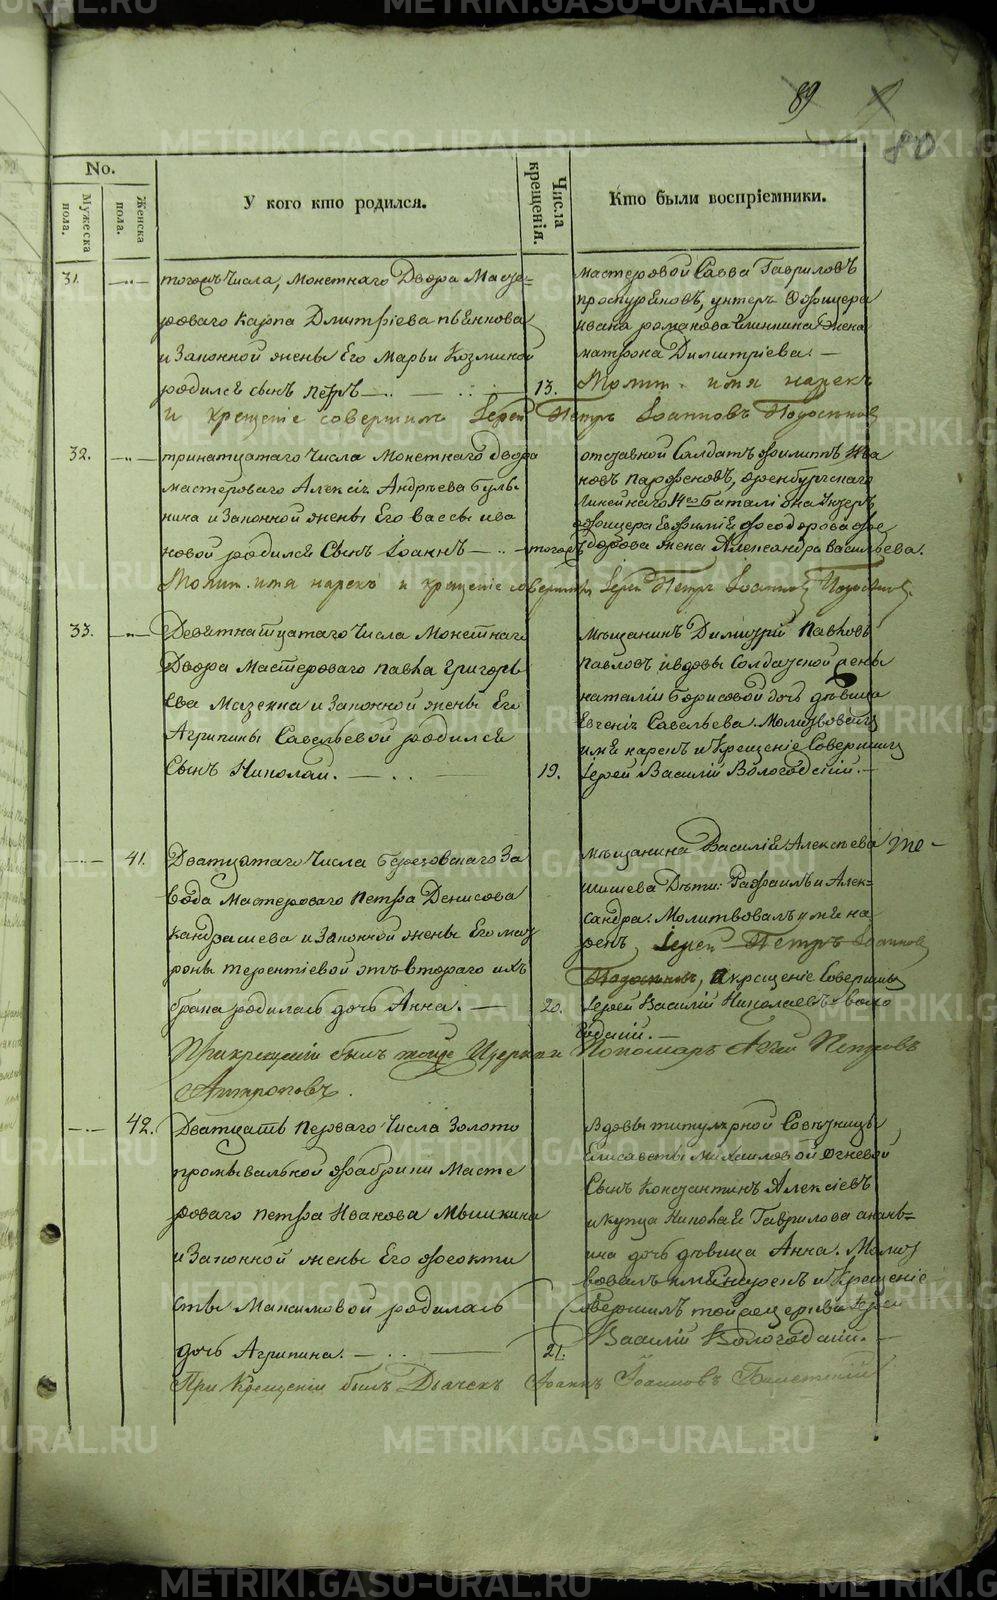 89
80
No.
Мужеска пола.
Женска пола.
У кого кто родился.
Числа крещенія.
Кто были воспріемники.
31.
тогожъ Числа, Монетнаго Двора Масте-
роваго Карпа Дмитріева
и Законной жены Его Марьи Козминой
родился сынъ Петръ
13.
мастеровой Савва Гавриловъ
Проскуряковъ, унтеръ Офицера
Ивана Романова жена
матрона Димитріева.
Молит. имя нарекъ
и крещеніе совершилъ Іерей Петръ Іоанновъ
32.
тринатцатаго Числа Монетнаго двора
мастероваго Алексія Андрѣева Буль-
нина и Законной жены Его Вассы Ива
новой родился Сынъ Іоаннъ
тогожъ
отставной Салдатъ Филиппъ Ива
новъ Парфеновъ, Оренбургскаго
Линейнаго баталіона Унтеръ
Офицера Евфимія Феодорова
жена Александра Васильева.
Молит. имя нарекъ и крещеніе совершилъ Іерей Петръ Іоанновъ
33.
Девятнатцатаго Числа Монетнаго
Двора Мастероваго Павла Григорь
ева Мазекна и Законной жены Его
Агрипины Савельевой родился
Сынъ Николай.
19.
Мѣщанинъ Димитрій Павловъ
Павловъ и вдовы Солдатской жены
наталіи Борисовой дочь дѣвица
Евгенія Савельева. Молитвовалъ
имя нарекъ и Крещеніе Совершилъ
Іерей Василій Вологодскій.
41.
Дватцатаго Числа Березовскаго За
вода Мастероваго Петра Денисова
Кандашева и Законной жены Его мат
роны терентіевой отъ втораго ихъ
брака родилась дочь Анна.
20.
Мѣщанина Василія Алексѣева
Дѣти: Рафаилъ и Алек-
сандра. Молитвовалъ имя на
рекъ Іерей Петръ Іоанновъ
крещеніе Совершилъ
Іерей Василій Николаевъ Воло
годскій.
При крещеніи былъ тойже Церкви Пономарь Петровъ
Антроповъ.
42.
Дватцать Перваго Числа Золото
промывальной Фабрики Масте
роваго Петра Иванова Мышкина
и Законной жены Его Феокти
сты Максимовой родилась
дочь Агрипина.
21.
Вдовы титулярной Совѣтницы
Елисаветы Михаиловой Огневой
Сынъ Константинъ Алексіевъ
и купца Николая Гаврилова Анань-
ина дочь дѣвица Анна. Молит
вовалъ имя нарекъ и Крещеніе
совершилъ той же церкви Іерей
Василій Вологодскій.
При Крещеніи былъ Дьячекъ Іоаннъ Іоанновъ
METRIKI.GASO-URAL.RU